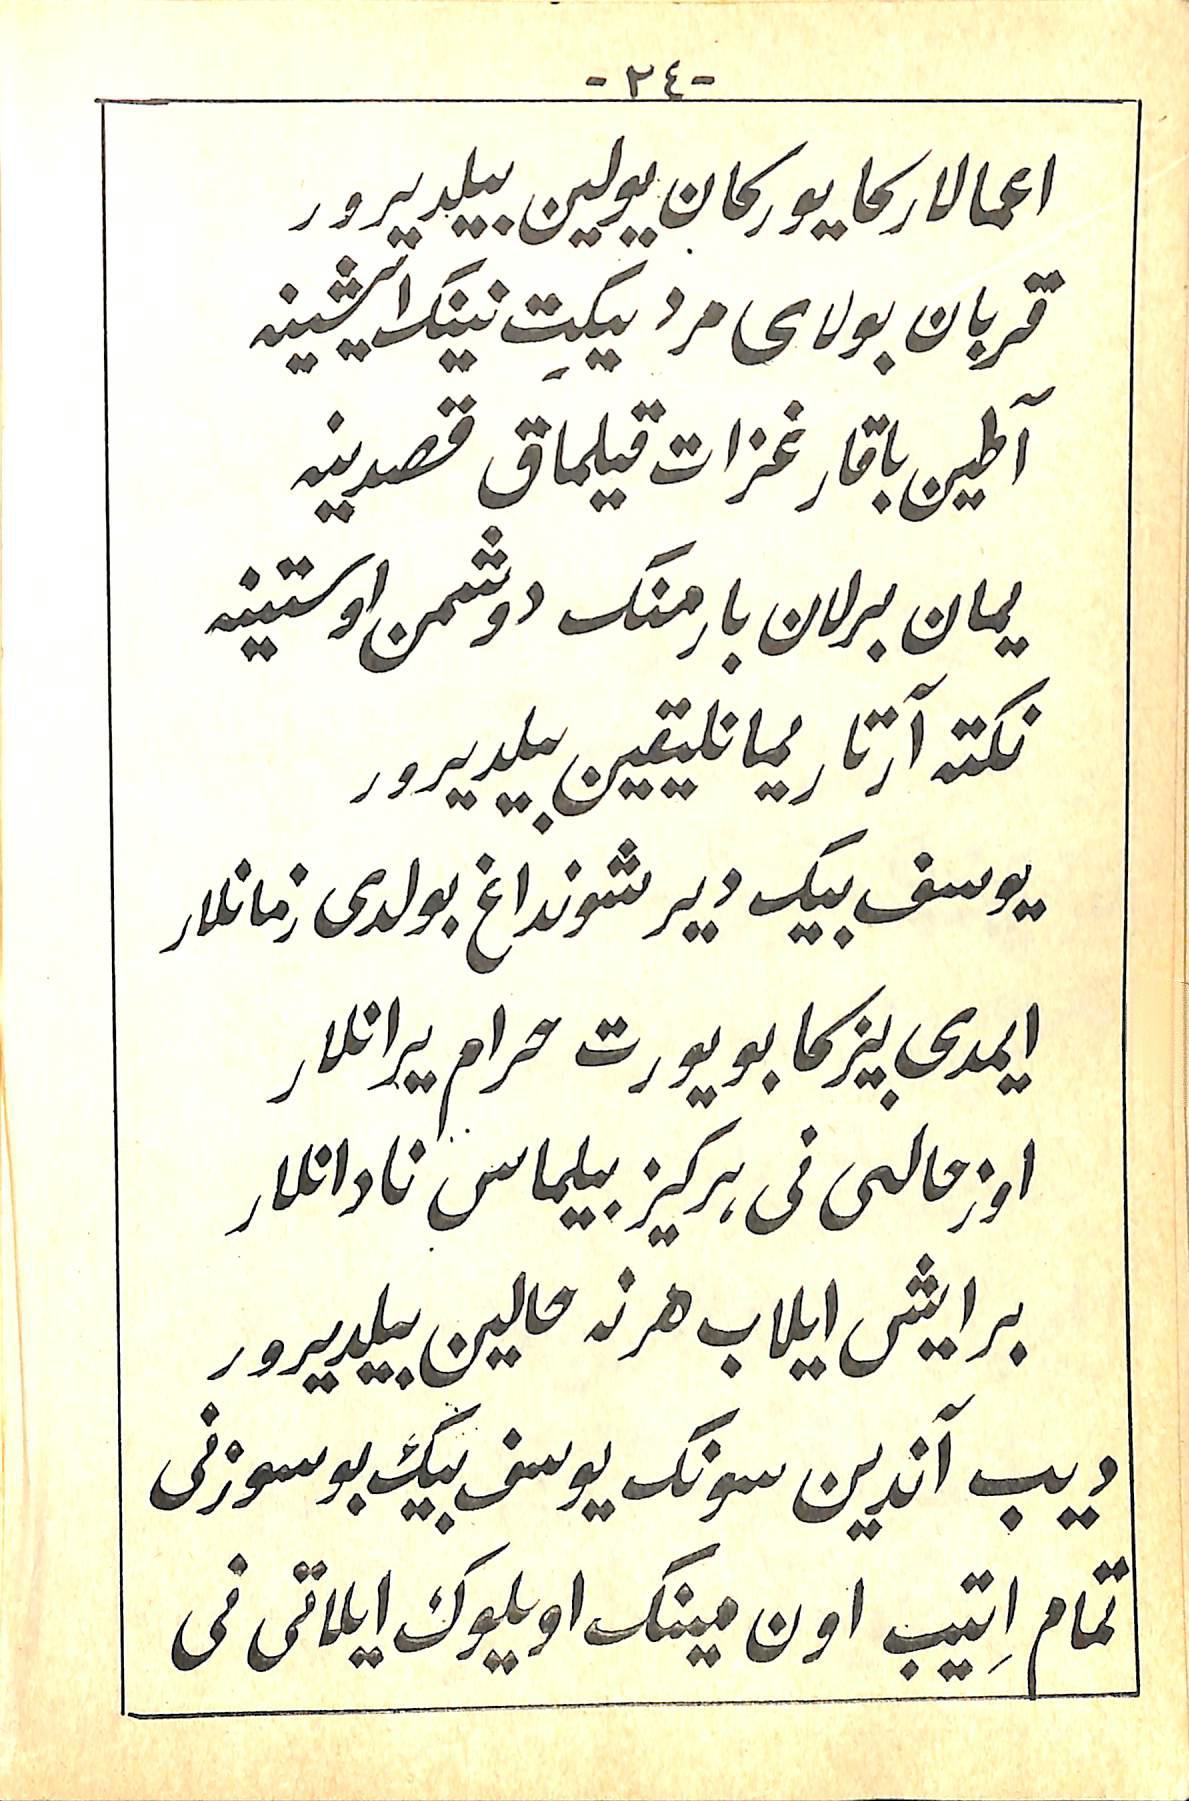 -٢٤-
اعمالارکا یورکان یولین بیلدیرور
قربان بولای مرد ییکتِ نینک ایشینه
آطین باقار غزات قیلماق قصدینه
یمان برلان بارمنک دوشمن اوستینه
نکته آرتار یمانلیقین بیلدیرور
یوسف بیک دیر شونداغ بولدی زمانلار
ایمدی بیزکا بو یورت حرام یرانلار
اوز حالی نی هرکیز بیلماس نادانلار
بر ایش ایلاب هر نه حالین بیلدیرور
دیب آندین سونک یوسف بیک بو سوزنی
تمام اِتیب اون مینک اویلوک ایلاتی نی